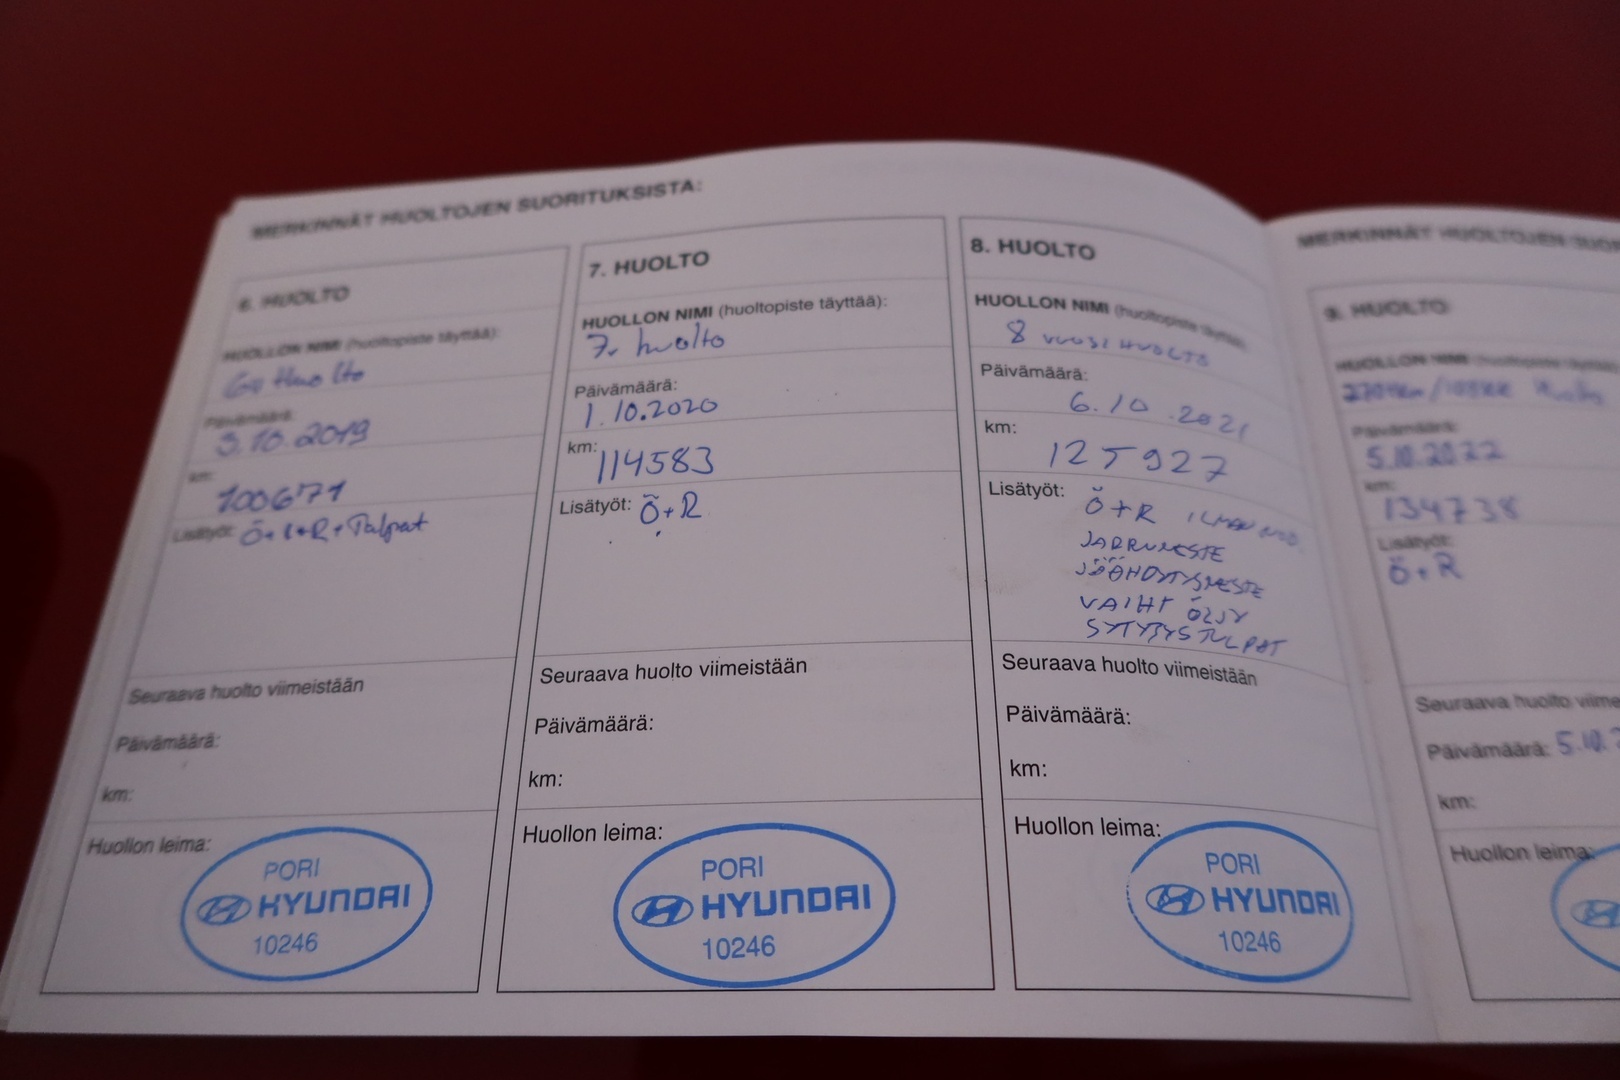 MERKINNÄT HUOLTOJEN SUORITUKSISTA:
6. HUOLTO
HUOLLON NIMI (huoltopiste täyttää):
6. Huolto
Päivämäärä:
3.10.2019
km:
100671
Lisätyöt: Ö+I+R+Tulpat
Seuraava huolto viimeistään
Päivämäärä:
km:
Huollon leima:
PORI
HYUNDAI
10246
7. HUOLTO
HUOLLON NIMI (huoltopiste täyttää):
7. huolto
Päivämäärä:
1.10.2020
km: 114583
Lisätyöt: Ö+R
Seuraava huolto viimeistään
Päivämäärä:
km:
Huollon leima:
PORI
HYUNDAI
10246
8. HUOLTO
HUOLLON NIMI (huoltopiste täyttää):
8 VUOSIHUOLTO
Päivämäärä:
6.10.2021
km:
125927
Lisätyöt: Ö+R ILMAN
JARRUNESTE
JÄÄHDYTYSNESTE
VAIHT ÖLJY
SYTYTYSTULPAT
Seuraava huolto viimeistään
Päivämäärä:
km:
Huollon leima:
PORI
HYUNDAI
10246
MERKINNÄT HUOLTOJEN
9. HUOLTO
HUOLLON NIMI (huoltopiste
Huolto
Päivämäärä:
5.10.2022
km:
134738
Lisätyöt:
Ö+R
Seuraava huolto
Päivämäärä: 5.10.
km:
Huollon leima: